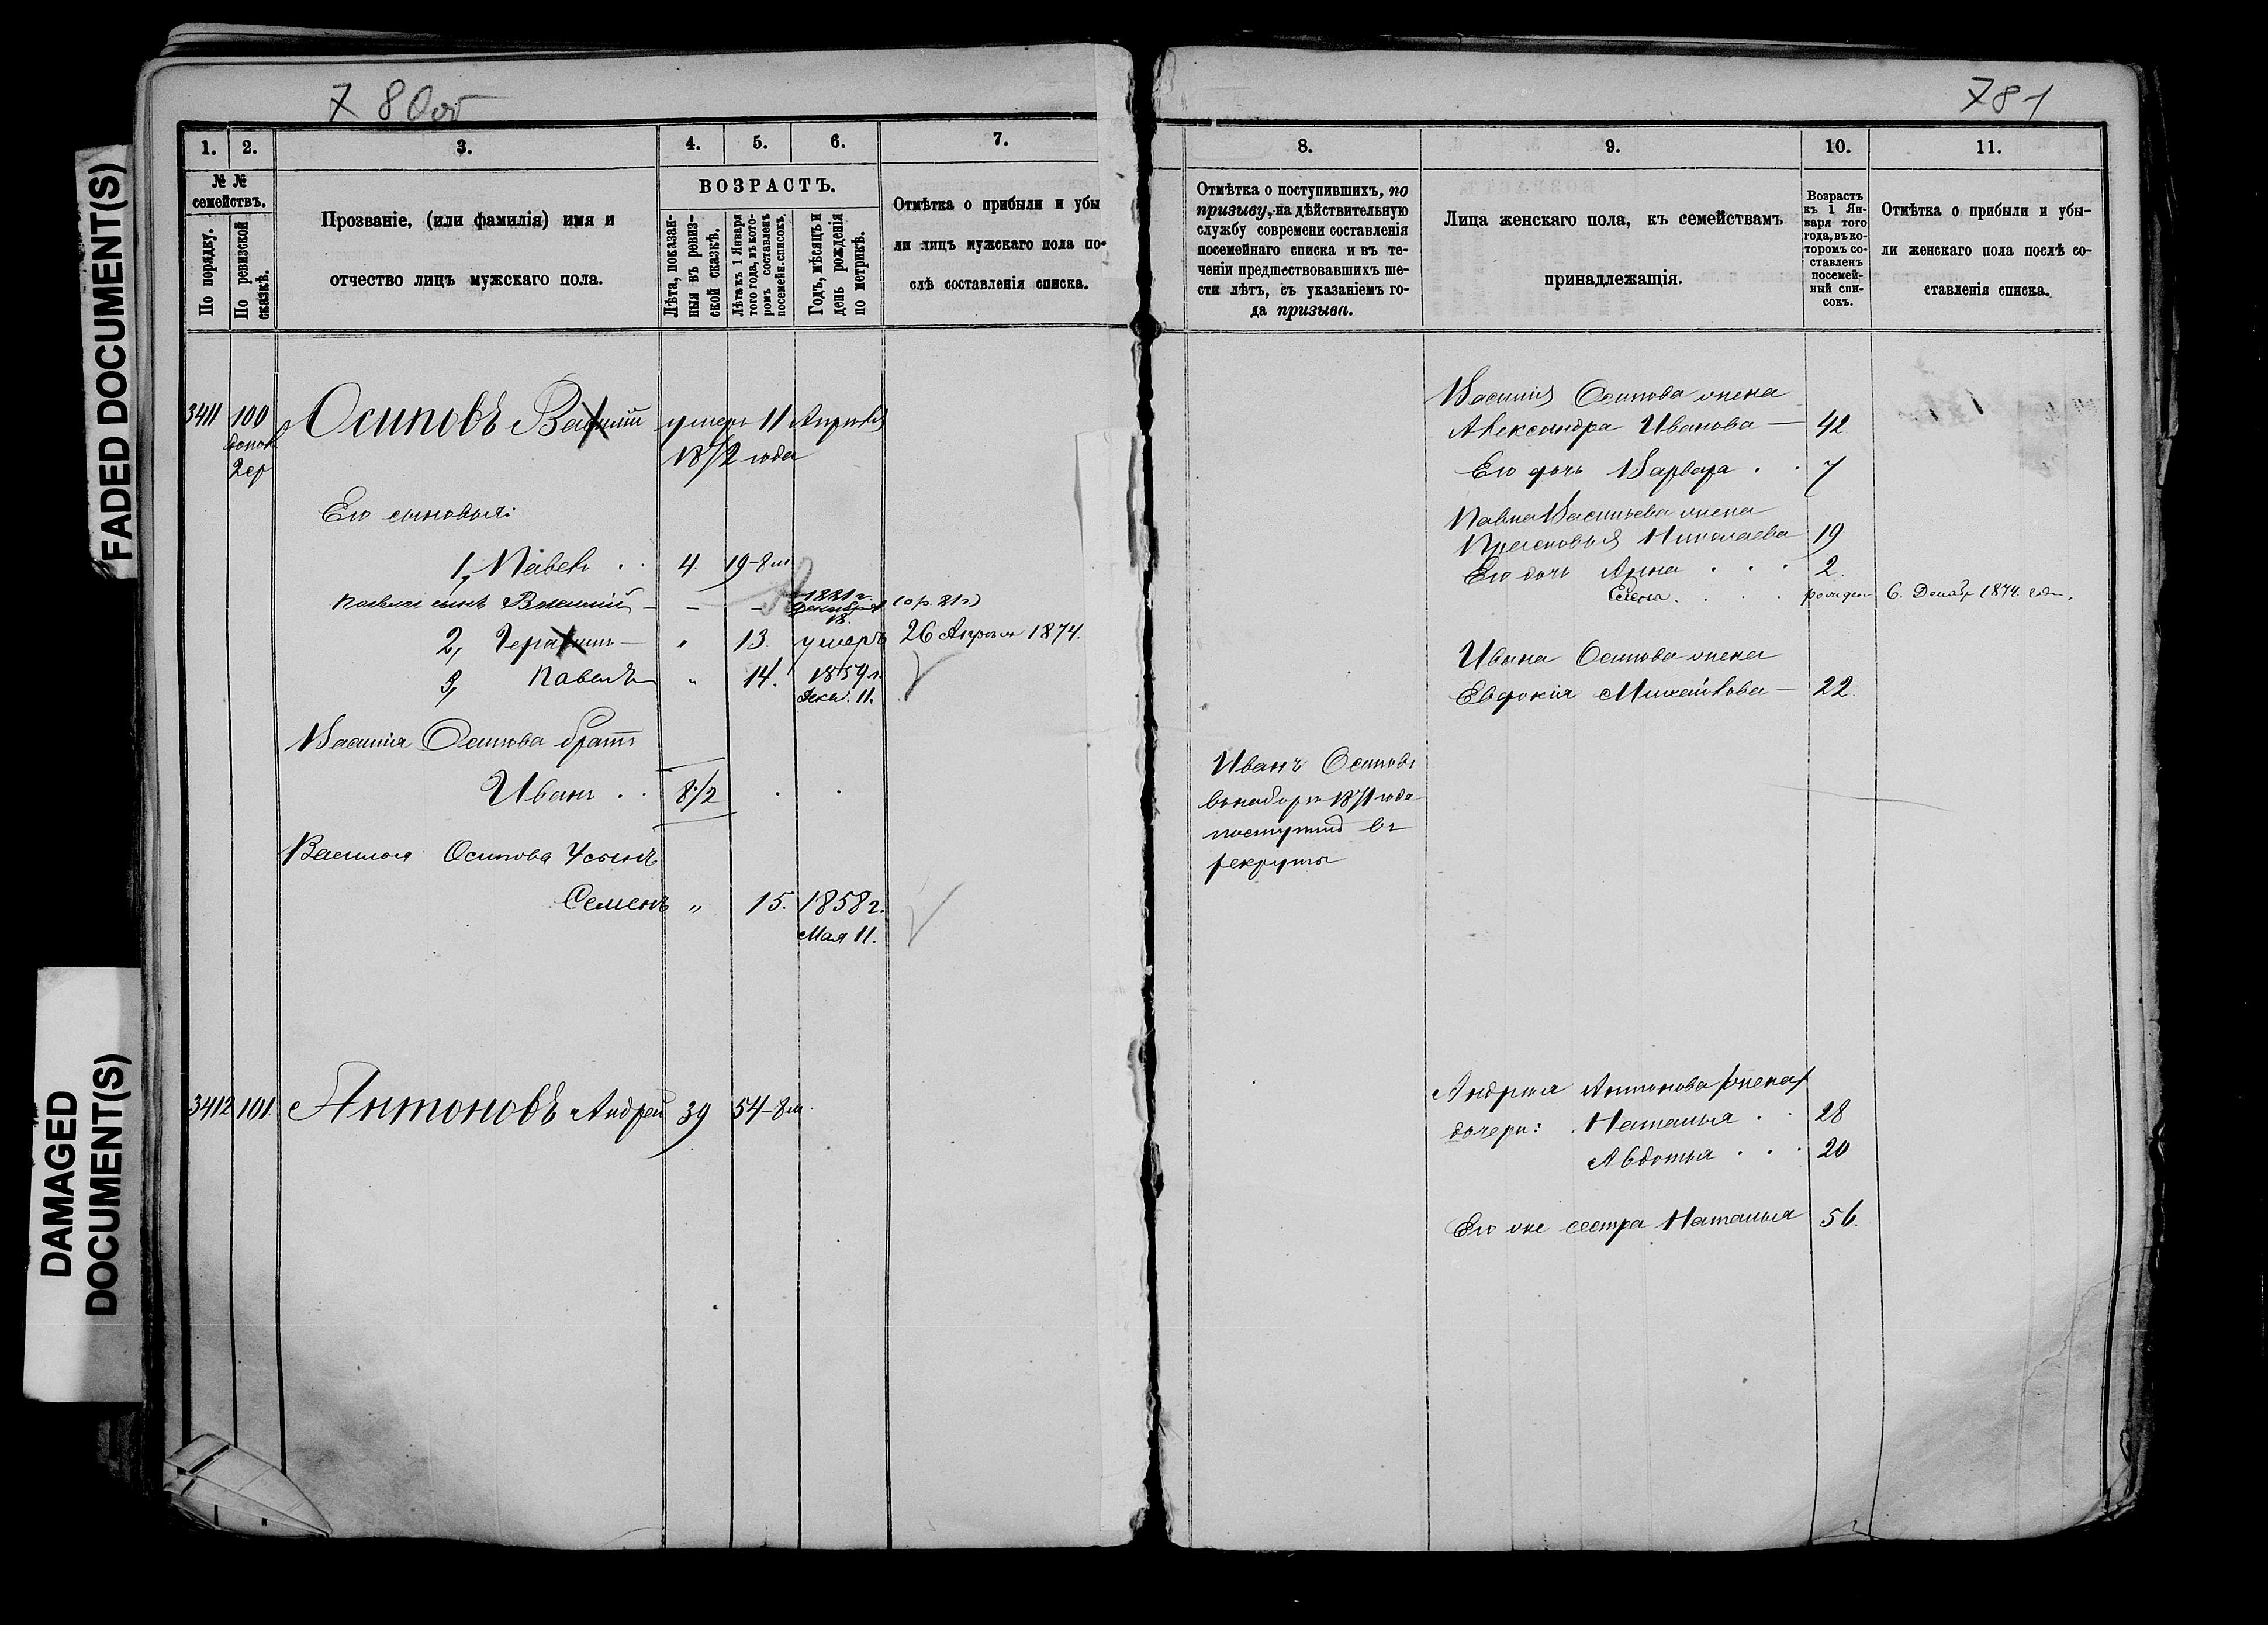 FADED DOCUMENT(S)
DAMAGED
DOCUMENT(S)
780об
1. 2. 3. 4. 5. 6. 7.
№ №
семействъ.
По порядку.
По ревизской
сказкѣ.
Прозваніе, (или фамилія) имя и
отчество лицъ мужскаго пола.
ВОЗРАСТЪ.
Лѣта, показан-
ныя въ ревиз-
ской сказкѣ.
Лѣта къ 1 Января
того года, въ кото-
ромъ составленъ
посемейн. списокъ.
Годъ, мѣсяцъ и
день рожденія
по метрикѣ.
Отмѣтка о прибыли и убы
ли лицъ мужскаго пола по-
слѣ составленія списка.
3411 100 Осиповъ Василій умеръ 11 Апрѣля
допол
2ср
1872 года
Его сыновья:
1, Павелъ . . 4. 19-8м
Павла сынъ Василій — — — 1881 г. (ар. 81 г)
Декабря
2, Герасимъ — " 13. умеръ 26 Апрѣля 1874.
3, Павелъ " 14. 1859 г.
Декаб. 11.
Василія Осипова братъ
Иванъ . . 8 1/2 . .
Василья Осипова 4 сынъ
Семенъ " 15. 1858 г.
Мая 11.
3412 101. Антоновъ Андрей 39 54-8м.
781
8. 9. 10. 11.
Отмѣтка о поступившихъ, по
призыву, на дѣйствительную
службу современи составленія
посемейнаго списка и въ те-
ченіи предшествовавшихъ ше-
сти лѣтъ, съ указаніемъ го-
да призыва.
Лица женскаго пола, къ семействамъ
принадлежащія.
Возрастъ
къ 1 Ян-
варя того
года, въ ко-
торомъ со-
ставленъ
посемей-
ный спи-
сокъ.
Отмѣтка о прибыли и убы-
ли женскаго пола послѣ со-
ставленія списка.
Василія Осипова жена
Александра Иванова — 42
Его дочь Варвара . . 7
Павла Васильева жена
Прасковья Николаева 19
Его дочь Анна . . . 2.
Елена . . . рожден 6. Декабр 1874. года.
Ивана Осипова жена
Евдокія Михайлова — 22.
Иванъ Осиповъ
въ наборъ 1871 года
поступилъ въ
рекруты
Андрея Антонова /жена/
дочери: Наталья . . 28
Авдотья . . . 20
Его же сестра Наталья 56.